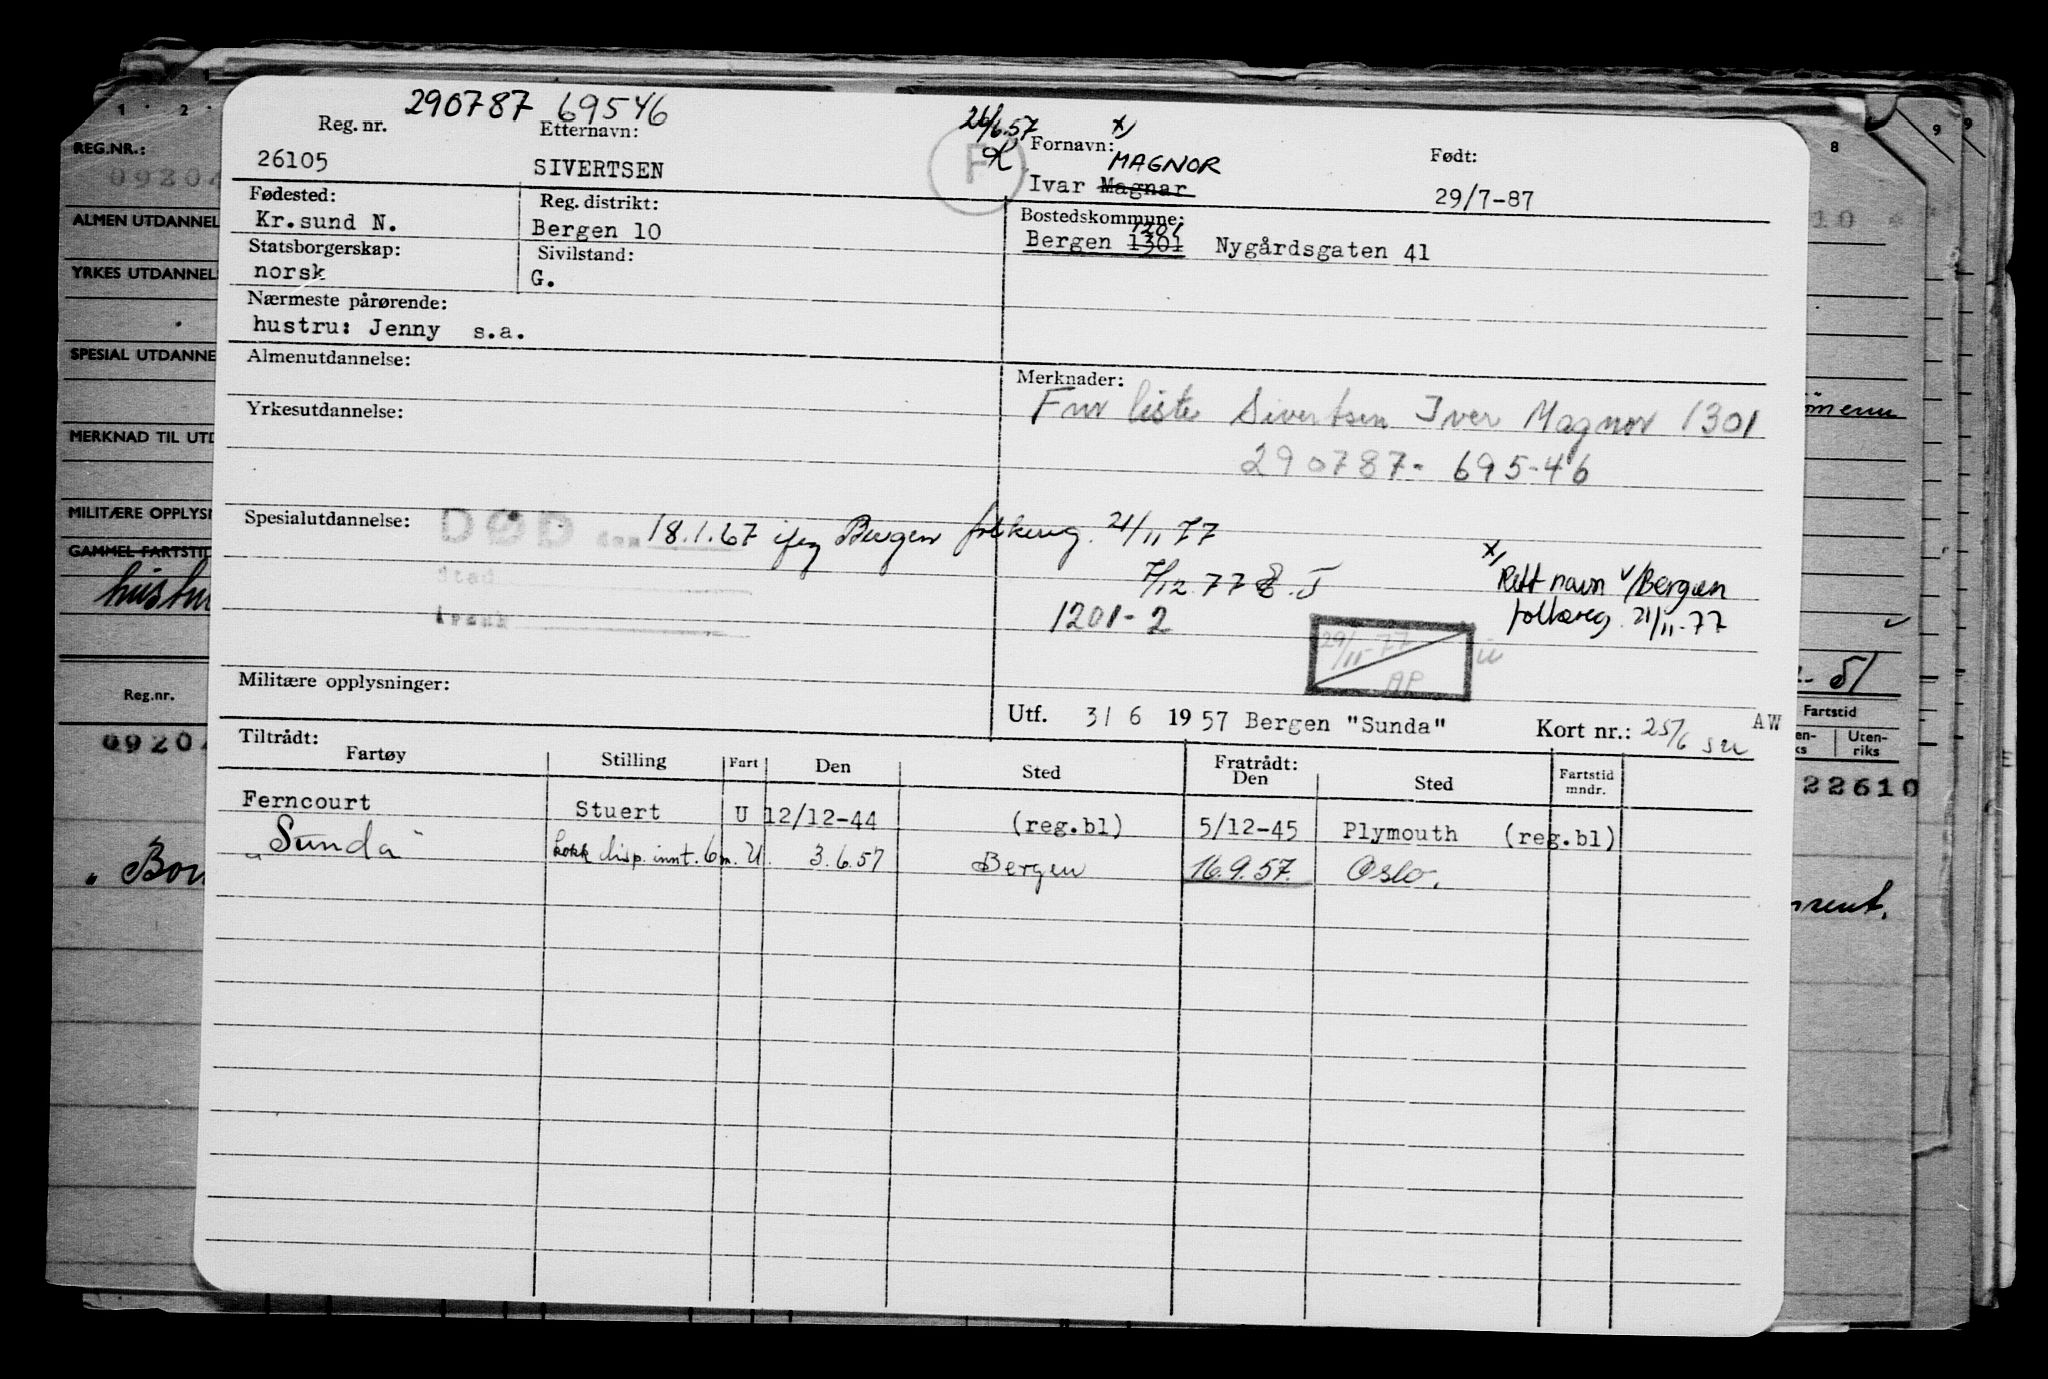 290787 69546
26/6.57
x)
Reg. nr. Etternavn: Fornavn: Født:
MAGNOR
26105 SIVERTSEN F Ivar Magnar 29/7-87
Fødested: Reg. distrikt: Bostedskommune:
1201
Kr.sund N. Bergen 10 Bergen 1301 Nygårdsgaten 41
Statsborgerskap: Sivilstand:
norsk G.
Nærmeste pårørende:
hustru: Jenny s.a.
Almenutdannelse: Merknader:
Fnr liste Sivertsen Iver Magnor 1301
Yrkesutdannelse:
290787- 695-46
Spesialutdannelse: DØD den 18.1.67 iføg Bergen folkereg. 21/11 77
Sted
7/12 77
x) Rett navn v/Bergen
folkereg. 21/11-77
Årsak
1201-2
29/11-77
AP
Militære opplysninger:
Utf. 3/ 6 1957 Bergen "Sunda" Kort nr.: 25/6 AW
Tiltrådt: Fratrådt:
Fartøy Stilling Fart Den Sted Den Sted Fartstid mndr.
Ferncourt Stuert U 12/12-44 (reg.bl) 5/12-45 Plymouth (reg.bl)
"Sunda" kokk disp. innt. 6 m. U. 3.6.57 Bergen 16.9.57. Oslo.
1 2
REG.NR.:
ALMEN UTDANNEL
YRKES UTDANNEL
SPESIAL UTDANNE
MERKNAD TIL UTD
MILITÆRE OPPLYSN
GAMMEL FARTSTID
Reg.nr.
09204
8 9 9
10
51
Fartstid
Uten-
riks
22610